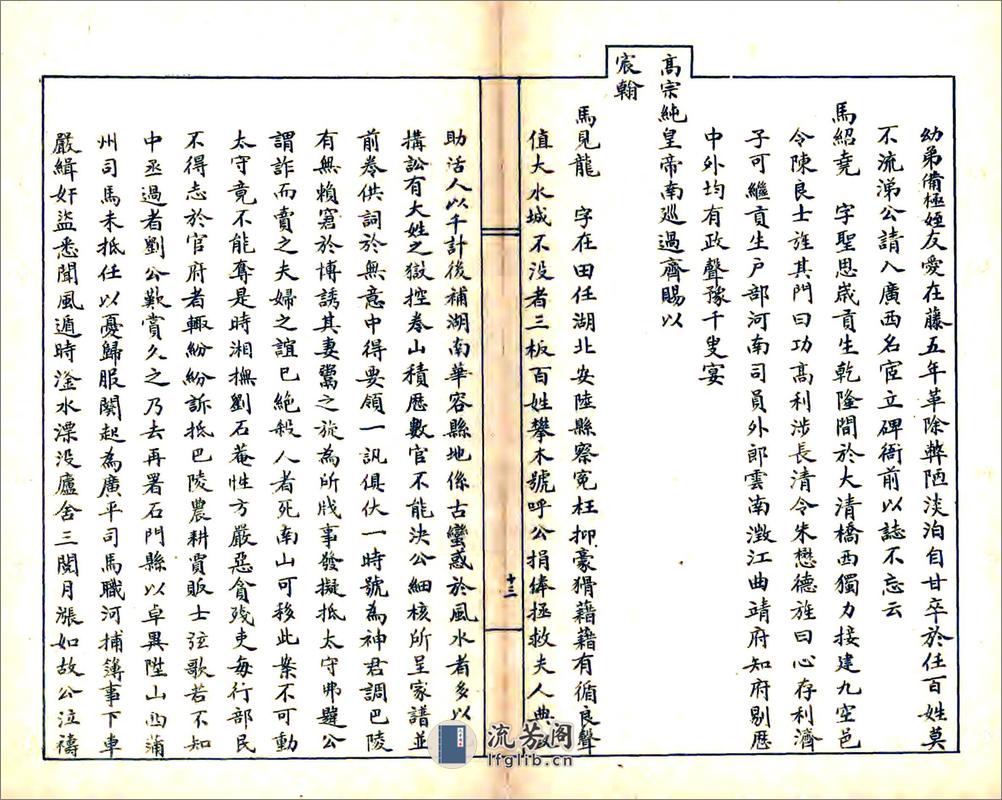 幼弟備極姪友愛在藤五年革除弊陋淡泊自甘卒於任百姓莫
不流涕公請入廣西名宦立碑衙前以誌不忘云
馬紹堯 字聖思歲貢生乾隆間於大清橋西獨力接建九空邑
令陳良士旌其門曰功高利涉長清令朱懋德旌曰心存利濟
子可繼貢生户部河南司員外郎雲南澂江曲靖府知府剔歷
中外均有政聲豫千叟宴
高宗純皇帝南巡過齊賜以
宸翰
馬見龍 字在田任湖北安陸縣察冤枉抑豪猾藉藉有循良聲
值大水城不没者三板百姓攀木號呼公捐俸拯救夫人典
十三
助活人以千計後補湖南華容縣地係古蠻惑於風水者多以
搆訟有大姓之獄控卷山積歷數官不能決公細核所呈家譜並
前卷供詞於無意中得要領一訊俱伏一時號為神君調巴陵
有無賴窘於博誘其妻鬻之旋為所戕事發擬抵太守弗韙公
謂詐而賣之夫婦之誼已絶殺人者死南山可移此案不可動
太守竟不能奪是時湘撫劉石菴性方嚴惡貪殘吏每行部民
不得志於官府者輙紛紛訴抵巴陵農耕賈販士弦歌若不知
中丞過者劉公歎賞久之乃去再署石門縣以卓異陞山西蒲
州司馬未抵任以憂歸服闋起為廣平司馬職河捕簿事下車
嚴緝奸盜悉聞風遁時滏水漂没廬舍三閱月漲如故公泣禱
流芳閣
lfglib.cn